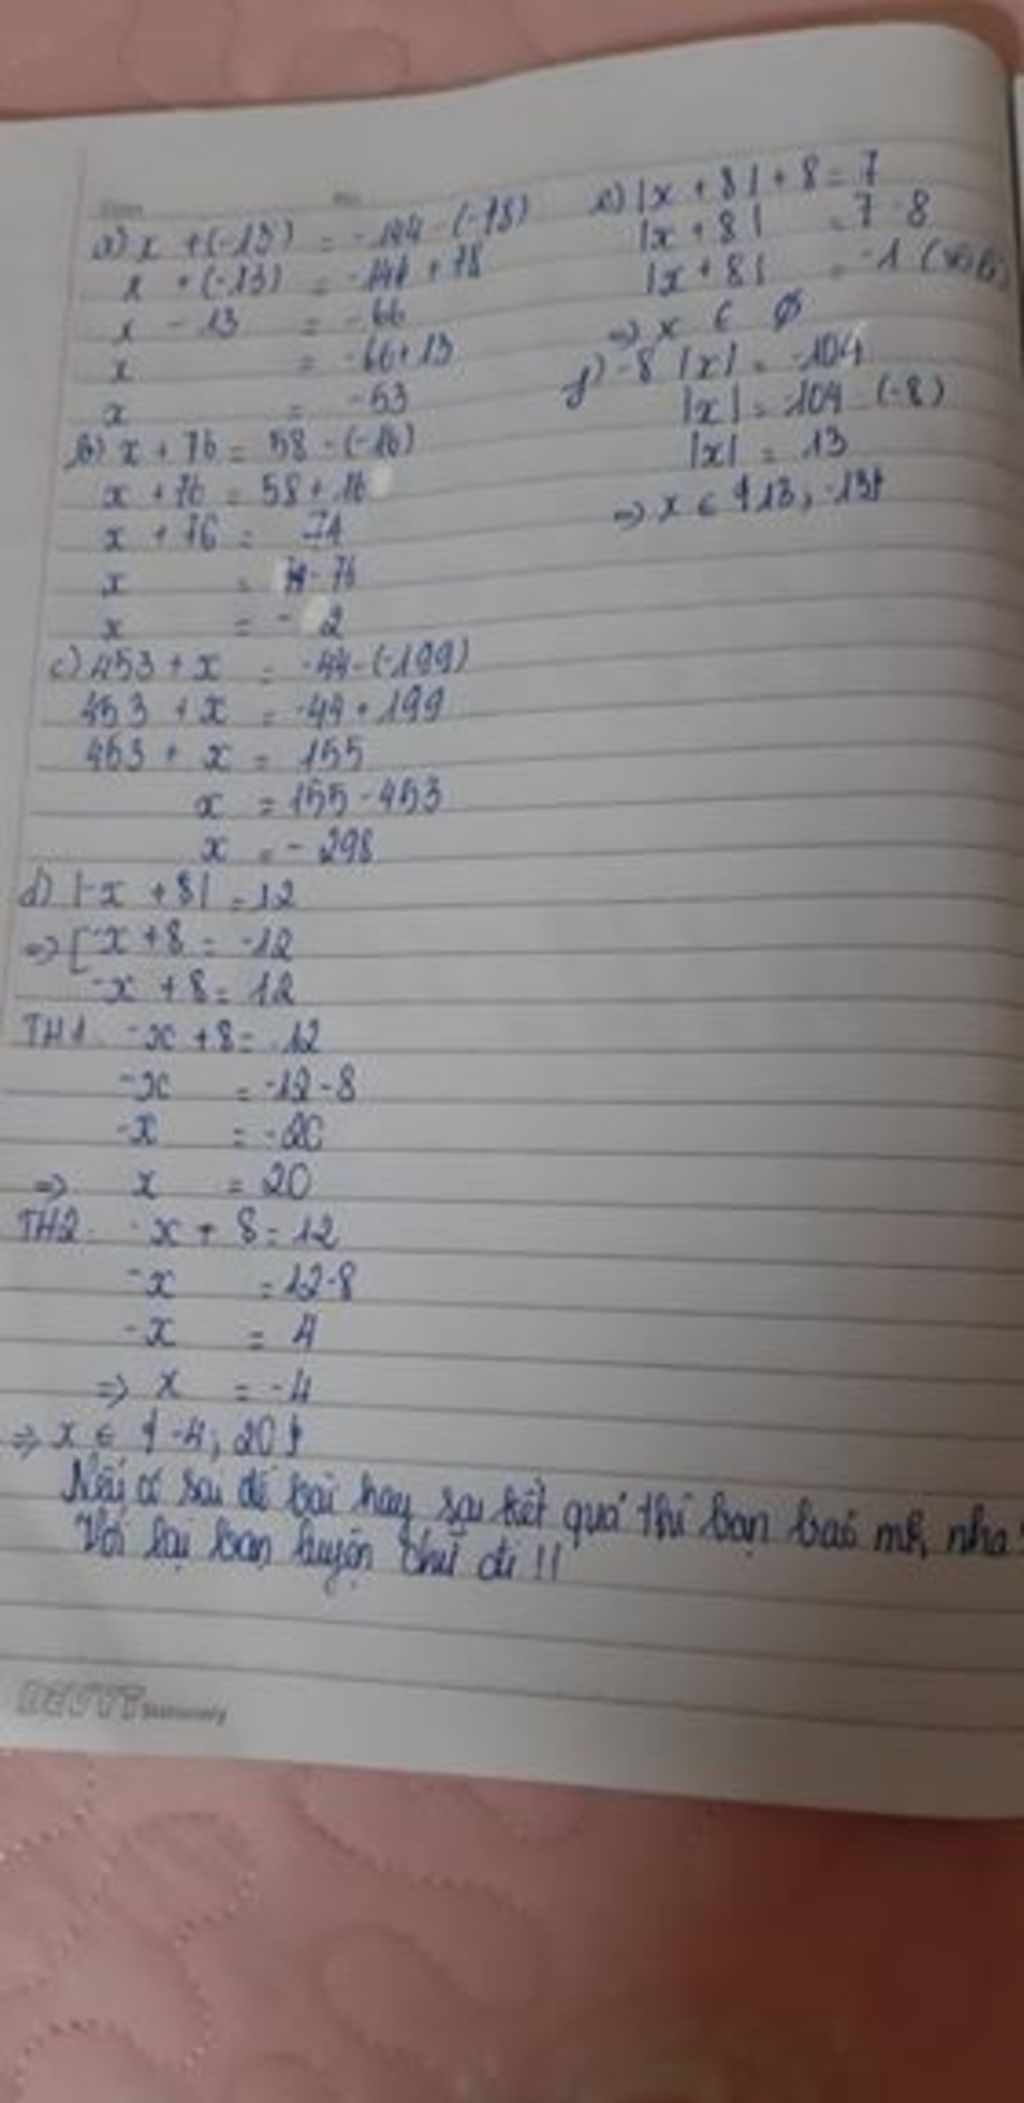 a) x + (-13) = -144 - (-78)
x + (-13) = -144 + 78
x - 13 = -66
x = -66 + 13
x = -53
b) x + 76 = 58 - (-16)
x + 76 = 58 + 16
x + 76 = 74
x = 74 - 76
x = - 2
c) 453 + x = -44 - (-199)
453 + x = -44 + 199
453 + x = 155
x = 155 - 453
x = - 298
d) |-x + 8| = 12
=> [ -x + 8 = -12
-x + 8 = 12
TH1. -x + 8 = -12
-x = -12 - 8
-x = -20
=> x = 20
TH2. -x + 8 = 12
-x = 12 - 8
-x = 4
=> x = -4
=> x ∈ {-4; 20}
Nếu có sai đề bài hay sai kết quả thì bạn báo mk nha!
Với lại bạn thử đi !!
e) |x + 8| + 8 = 7
|x + 8| = 7 - 8
|x + 8| = -1
=> x ∈ ∅
f) -8 |x| = -104
|x| = 104 (-8)
|x| = 13
=> x ∈ {13; -13}
DELTT Stationery